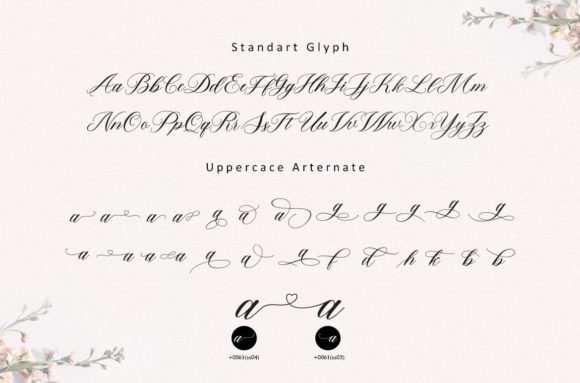 Standart Glyph
Aa Bb Cc Dd Ee Ff Gg Hh Ii Jj Kk Ll Mm
Nn Oo Pp Qq Rr Ss Tt Uu Vv Ww Xx Yy Zz
Uppercace Arternate
a a a a g a a g y g y g
a a a a g a g f d h k b b
a a
a a
+0061(ss04) +0061(ss03)